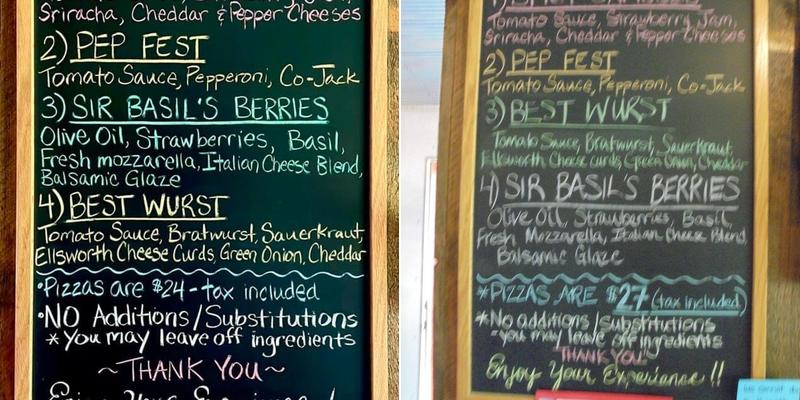 Sriracha, Cheddar & Pepper Cheeses
2) PEP FEST
Tomato Sauce, Pepperoni, Co-Jack
3) SIR BASIL'S BERRIES
Olive Oil, Strawberries, Basil,
Fresh mozzarella, Italian Cheese Blend,
Balsamic Glaze
4) BEST WURST
Tomato Sauce, Bratwurst, Sauerkraut,
Ellsworth Cheese Curds, Green Onion, Cheddar
•Pizzas are $24 - tax included
•NO Additions/Substitutions
*You may leave off ingredients
~THANK YOU~
Tomato Sauce, Strawberry Jam,
Sriracha, Cheddar & Pepper Cheeses
2) PEP FEST
Tomato Sauce, Pepperoni, Co-Jack
3) BEST WURST
Tomato Sauce, Bratwurst, Sauerkraut,
Ellsworth Cheese curds, Green Onion, Cheddar
4) SIR BASIL'S BERRIES
Olive Oil, Strawberries, Basil,
Fresh Mozzarella, Italian Cheese Blend,
Balsamic Glaze
*PIZZAS ARE $27 (tax included)
*No additions/substitutions
-you may leave off ingredients
THANK YOU!
Enjoy Your Experience!!